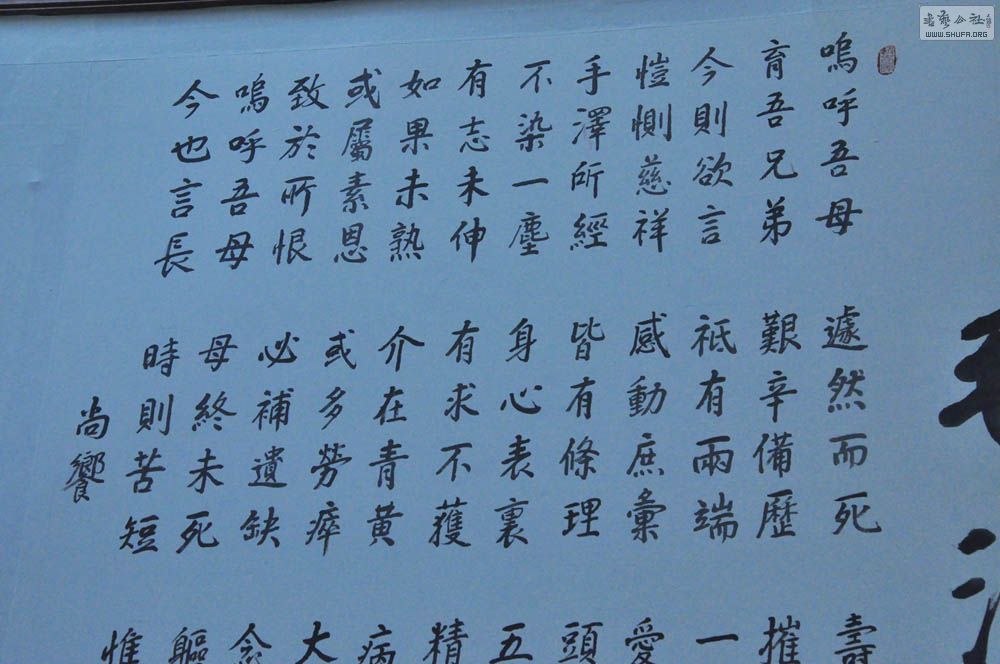 嗚呼吾母 遽然而死 壽
育吾兄弟 艱辛備歷 摧
今則欲言 祗有兩端 一
愷惻慈祥 感動庶彙 愛
手澤所經 皆有條理 頭
不染一塵 身心表裏 五
有志未伸 有求不獲 精
如果未熟 介在青黃 病
或屬素恩 或多勞瘁 大
致於所恨 必補遺缺 念
嗚呼吾母 母終未死 軀
今也言長 時則苦短 惟
尚饗
書藝公社
WWW.SHUFA.ORG